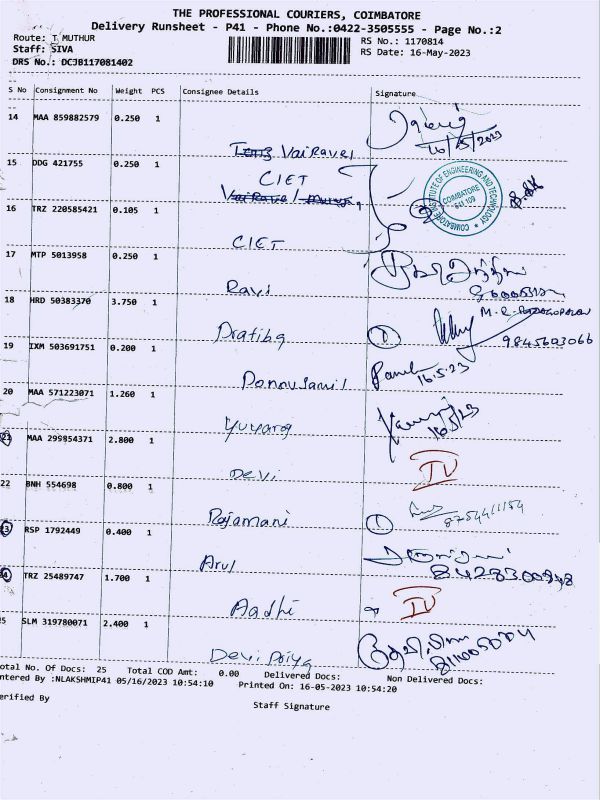 THE PROFESSIONAL COURIERS, COIMBATORE
Delivery Runsheet - P41 - Phone No.:0422-3505555 - Page No.:2
Route: T MUTHUR
Staff: SIVA
DRS No.: DCJB117081402
RS No.: 1170814
RS Date: 16-May-2023
S No Consignment No Weight PCS Consignee Details Signature
14 MAA 859882579 0.250 1
16/5/2023
VaiRavel
15 DDG 421755 0.250 1
CIET
COIMBATORE INSTITUTE OF ENGINEERING AND TECHNOLOGY
COIMBATORE
641 109
16 TRZ 220585421 0.105 1
CIET
17 MTP 5013958 0.250 1
Ravi
18 HRD 50383370 3.750 1
M.R. RAJAGOPALAN
Pratibg
1
9845603066
19 IXM 503691751 0.200 1
Ponnusamil
16.5.23
20 MAA 571223071 1.260 1
Yuvarag
16/5/23
21 MAA 299854371 2.800 1
Devi
IV
22 BNH 554698 0.800 1
Rajamani
1
8754411154
23 RSP 1792449 0.400 1
Arul
8428300948
24 TRZ 25489747 1.700 1
Aadhi
IV
25 SLM 319780071 2.400 1
Devi priya
தேவி பிரியா
Total No. Of Docs: 25 Total COD Amt: 0.00 Delivered Docs: Non Delivered Docs:
Entered By :NLAKSHMIP41 05/16/2023 10:54:10 Printed On: 16-05-2023 10:54:20
Verified By
Staff Signature